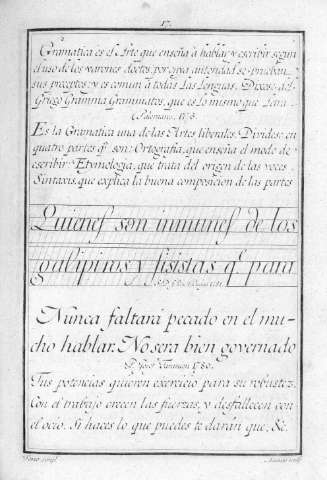 17.
Gramatica es el Arte que enseña à hablar y escribir segun
el uso de los varones doctos, por cuya autoridad se prueban
sus preceptos: y es comun à todas las Lenguas. Dixose del
Griego Gramma Grammatos, que es lo mismo que Letra.
Es la Gramatica una de las Artes liberales. Dividese en
quatro partes q.e son: Ortografia, que enseña el modo de
escribir: Etymologia, que trata del origen de las voces.
Sintaxis, que explica la buena composicion de las partes
Quienes son inmunes de los
y q.e para
Nunca faltará pecado en el mu-
cho hablar. No sera bien governado
1780.
Tus potencias quieren exercicio para su robustez.
Con el trabajo crecen las fuerzas, y desfallecen con
el ocio. Si haces lo que puedes te darán que, &c.